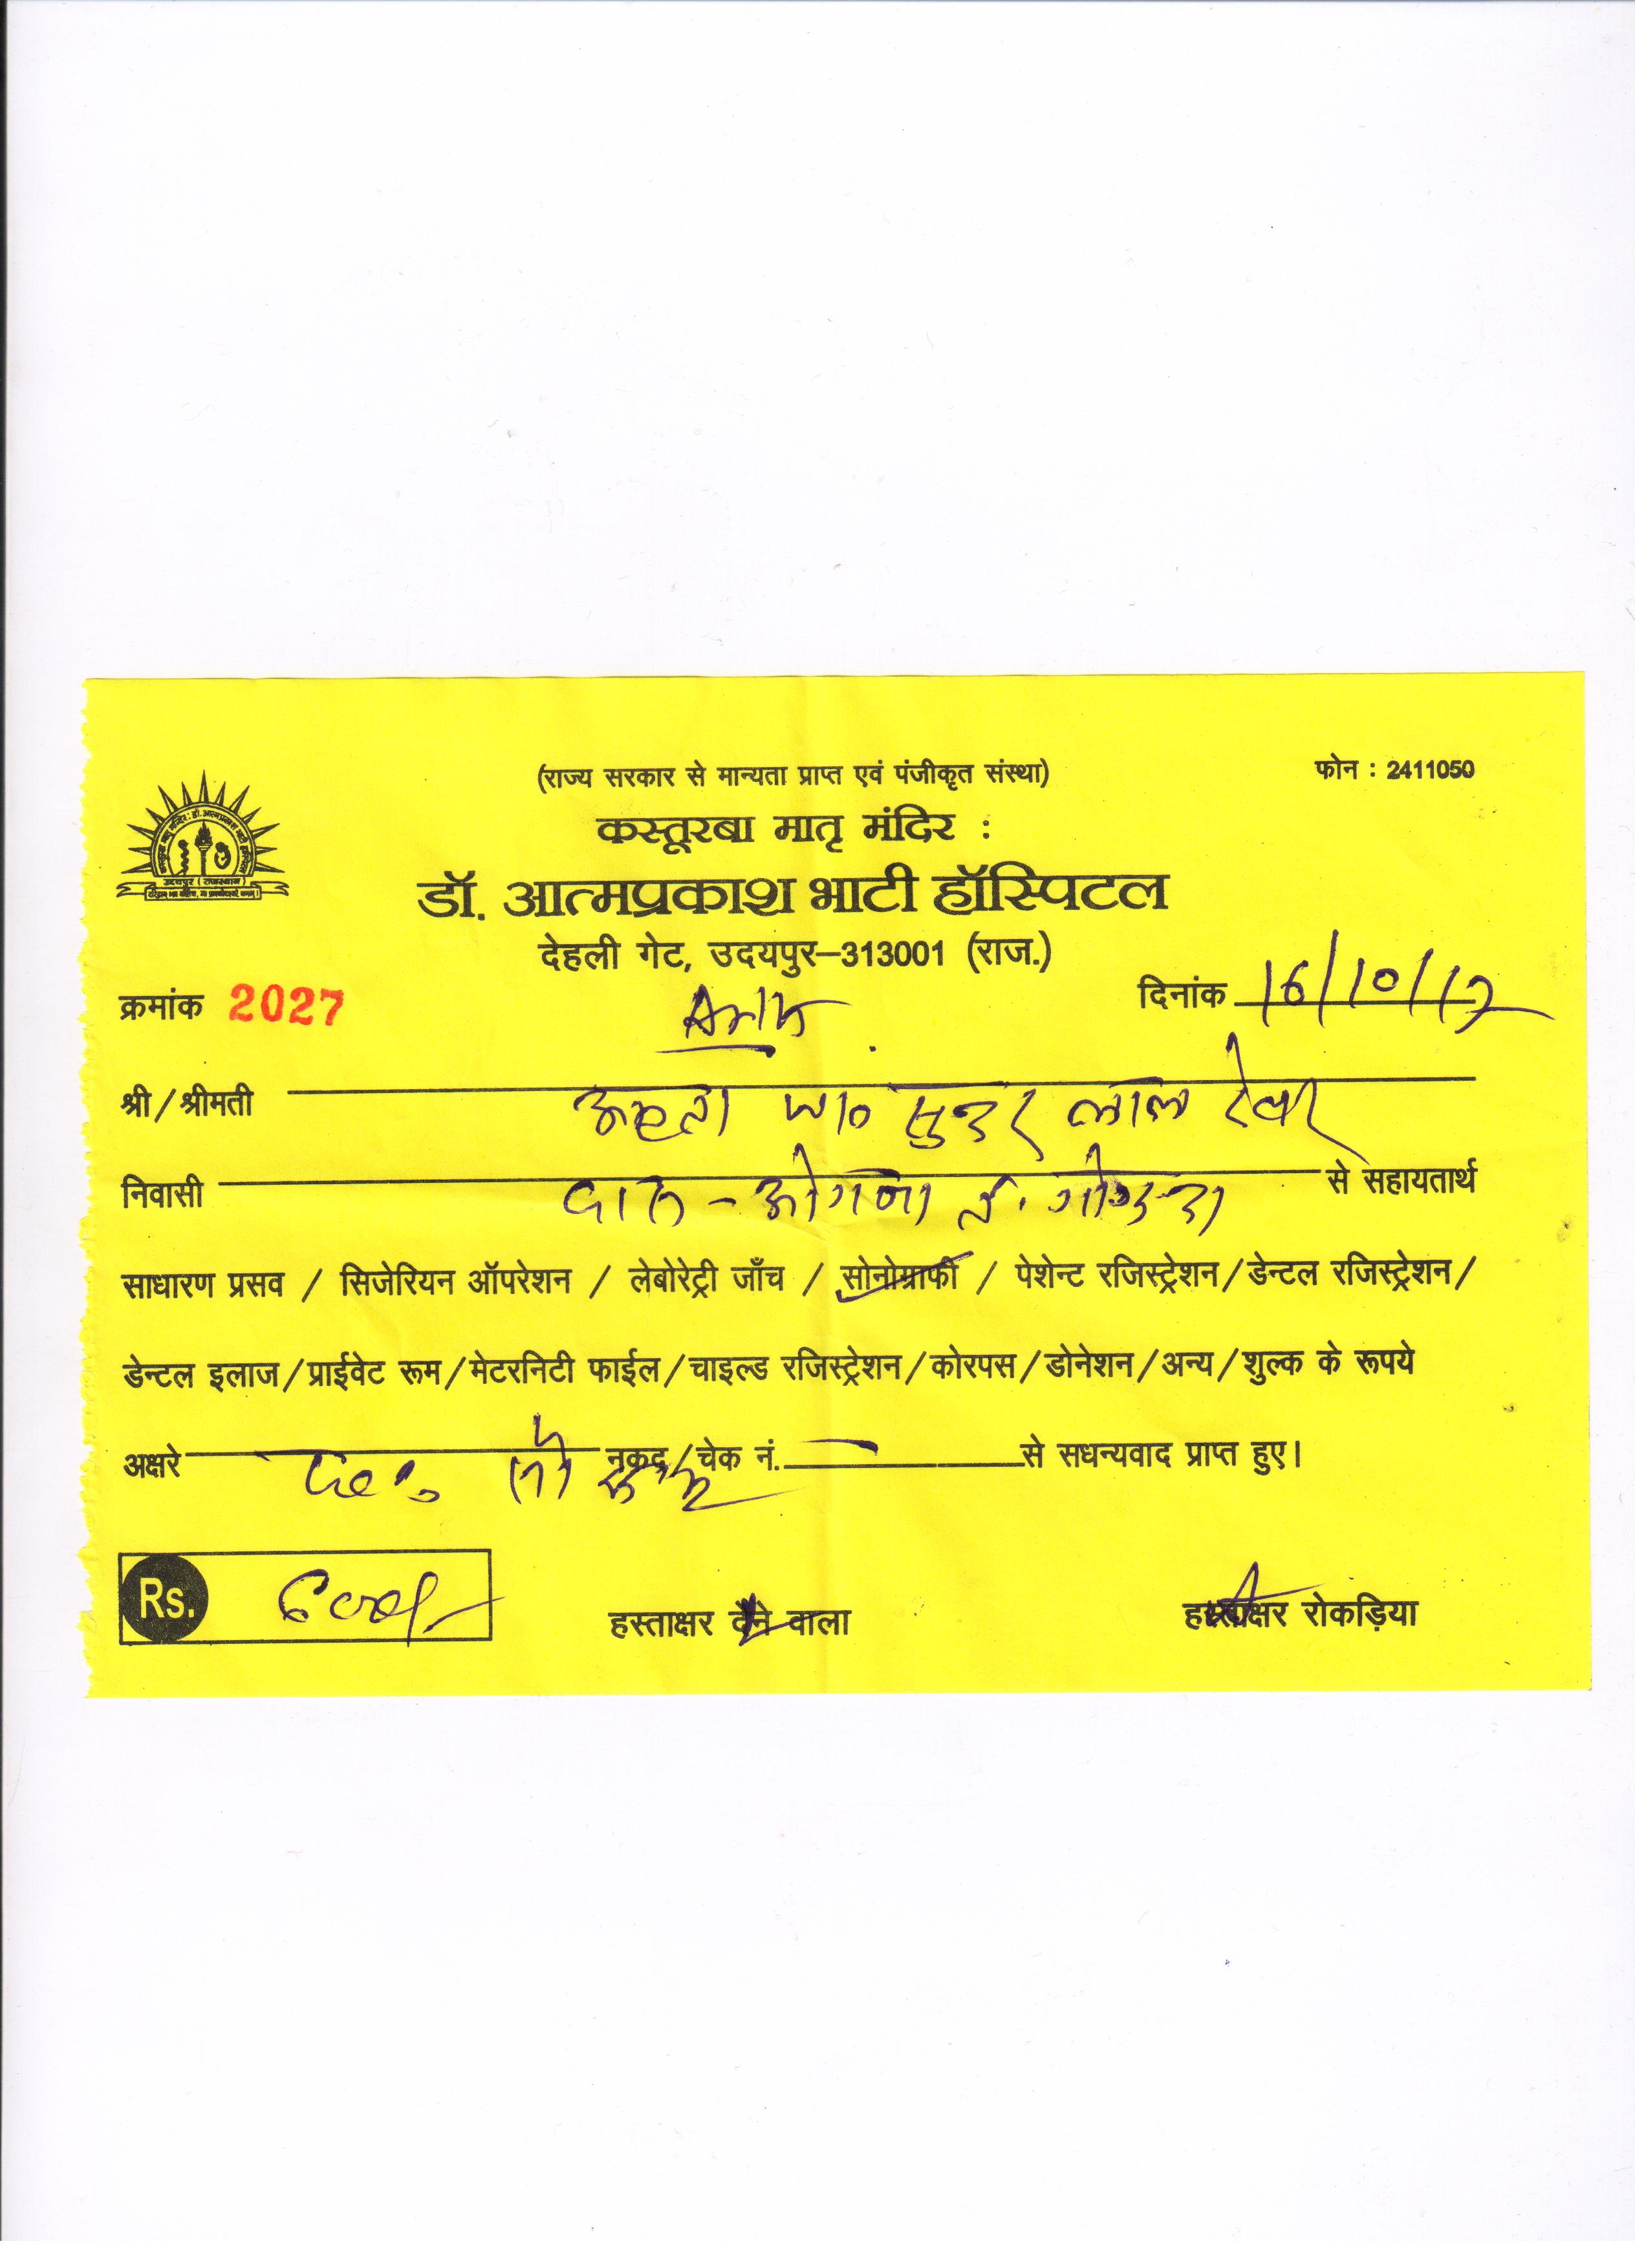 (राज्य सरकार से मान्यता प्राप्त एवं पंजीकृत संस्था)
फोन : 2411050
कस्तूरबा मातृ मंदिर :
डॉ. आत्मप्रकाश भाटी हॉस्पिटल
उदयपुर (राजस्थान)
देहली गेट, उदयपुर–313001 (राज.)
क्रमांक 2027
दिनांक 16/10/17
श्री/श्रीमती सुन्दर लाल
निवासी से सहायतार्थ
साधारण प्रसव / सिजेरियन ऑपरेशन / लेबोरेट्री जाँच / सोनोग्राफी / पेशेन्ट रजिस्ट्रेशन/डेन्टल रजिस्ट्रेशन/
डेन्टल इलाज/प्राईवेट रूम/मेटरनिटी फाईल/चाइल्ड रजिस्ट्रेशन/कोरपस/डोनेशन/अन्य/शुल्क के रूपये
अक्षरे नकद/चेक नं. से सधन्यवाद प्राप्त हुए।
Rs.
हस्ताक्षर देने वाला
हस्ताक्षर रोकड़िया